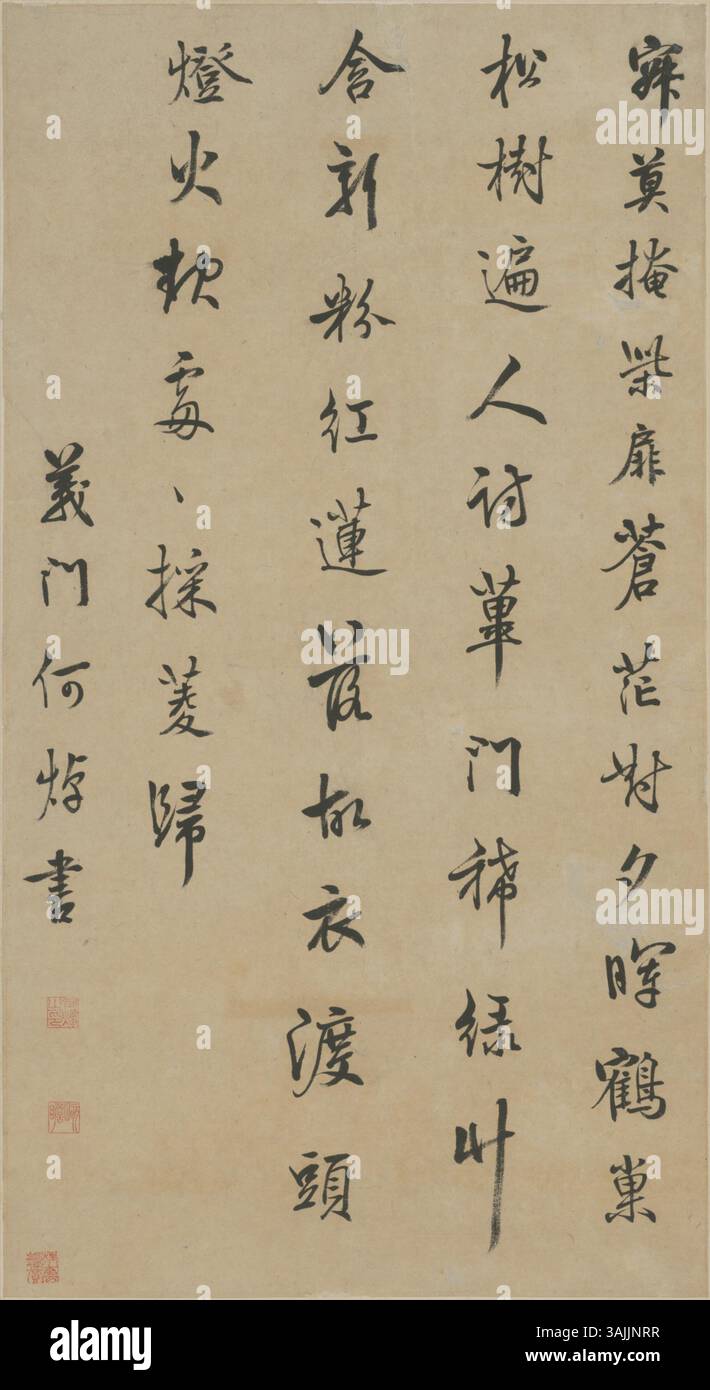 寂莫掩柴扉蒼茫對夕暉鶴巢
松樹遍人訪蓽門稀綠竹
含新粉紅蓮落故衣渡頭
燈火處〻採菱歸
義門何焯書
alamy
Image ID: 3AJJNRR
www.alamy.com